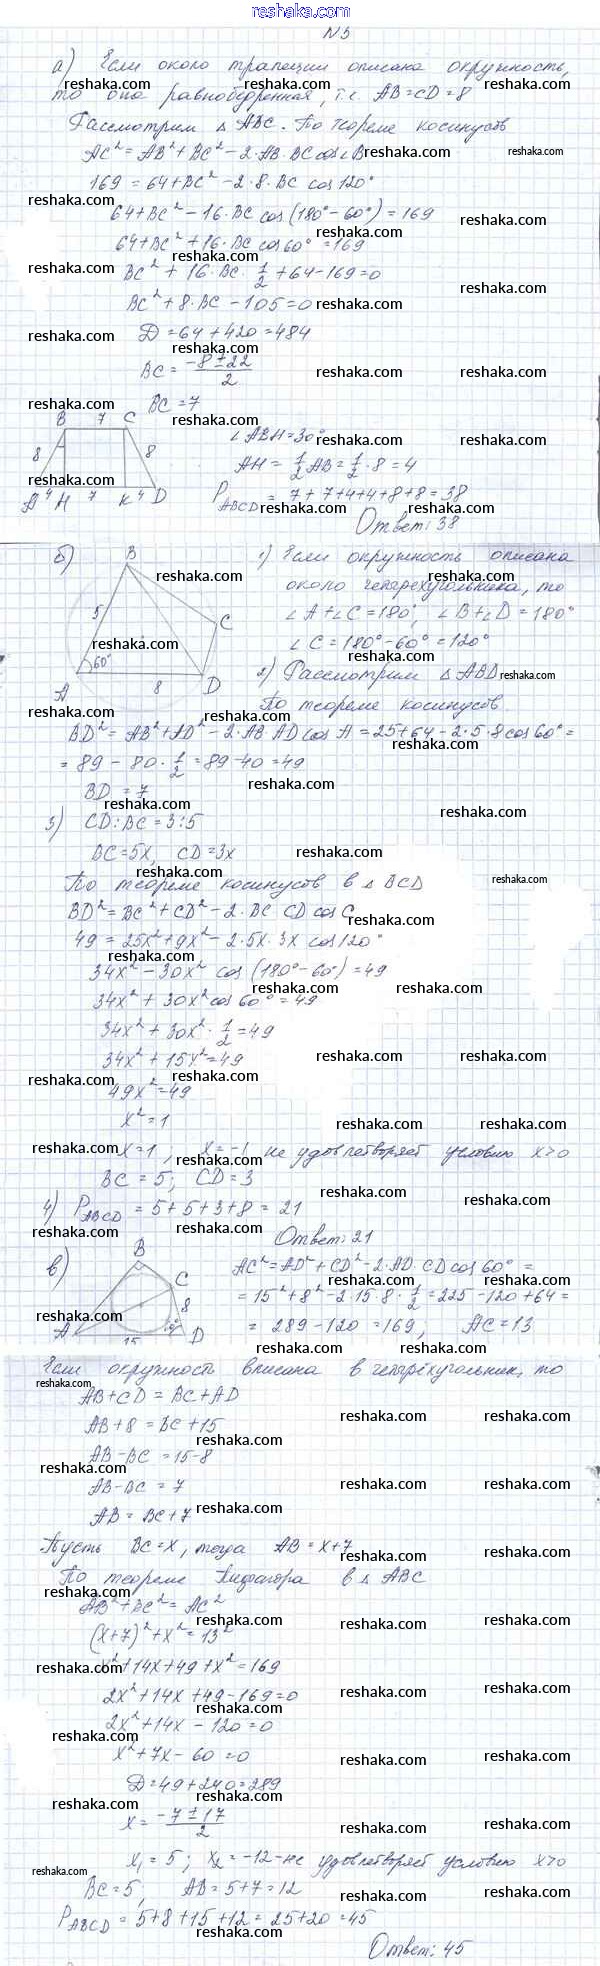 www.reshaka.com
№3
а) Если около трапеции описана окружность,
то она равнобедренная, т.е. AB=CD=8
Рассмотрим △ABC. По теореме косинусов
AC²=AB²+BC²-2·AB·BC cos∠B
169=64+BC²-2·8·BC cos120°
64+BC²-16·BC cos(180°-60°)=169
64+BC²+16·BC cos60°=169
BC²+16·BC·1/2+64-169=0
BC²+8·BC-105=0
D=64+420=484
BC=(-8±22)/2
BC=7
B 7 C
8 8
A 4 H 7 K 4 D
∠ABH=30°
AH=1/2AB=1/2·8=4
P_ABCD=7+7+4+4+8+8=38
Ответ: 38
б)
B
5
C
60°
A 8 D
1) Если окружность описана
около четырёхугольника, то
∠A+∠C=180°, ∠B+∠D=180°
∠C=180°-60°=120°
2) Рассмотрим △ABD
По теореме косинусов
BD²=AB²+AD²-2·AB·AD cos A=25+64-2·5·8cos60°=
=89-80·1/2=89-40=49
BD=7
3) CD:BC=3:5
BC=5x, CD=3x
По теореме косинусов в △BCD
BD²=BC²+CD²-2·BC·CD cos C
49=25x²+9x²-2·5x·3x cos120°
34x²-30x² cos(180°-60°)=49
34x²+30x²cos60°=49
34x²+30x²·1/2=49
34x²+15x²=49
49x²=49
x²=1
x=1; x=-1 не удовлетворяет условию x>0
BC=5; CD=3
4) P_ABCD=5+5+3+8=21
Ответ: 21
в)
B
C
8
A 15 D
AC²=AD²+CD²-2·AD·CD cos60°=
=15²+8²-2·15·8·1/2=225-120+64=
=289-120=169; AC=13
Если окружность вписана в четырёхугольник, то
AB+CD=BC+AD
AB+8=BC+15
AB-BC=15-8
AB-BC=7
AB=BC+7
Пусть BC=x, тогда AB=x+7
По теореме Пифагора в △ABC
AB²+BC²=AC²
(x+7)²+x²=13²
x²+14x+49+x²=169
2x²+14x+49-169=0
2x²+14x-120=0
x²+7x-60=0
D=49+240=289
x=(-7±17)/2
x₁=5; x₂=-12-не удовлетворяет условию x>0
BC=5; AB=5+7=12
P_ABCD=5+8+15+12=25+20=45
Ответ: 45